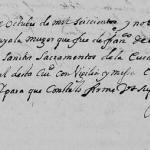 Octubre de mil seiscientos y nov
ayala muger que fue de Juan de
Santos Sacramentos de la Eucar
al desta Ciu.d con Vigilia y missa
Para que Conste lo firme